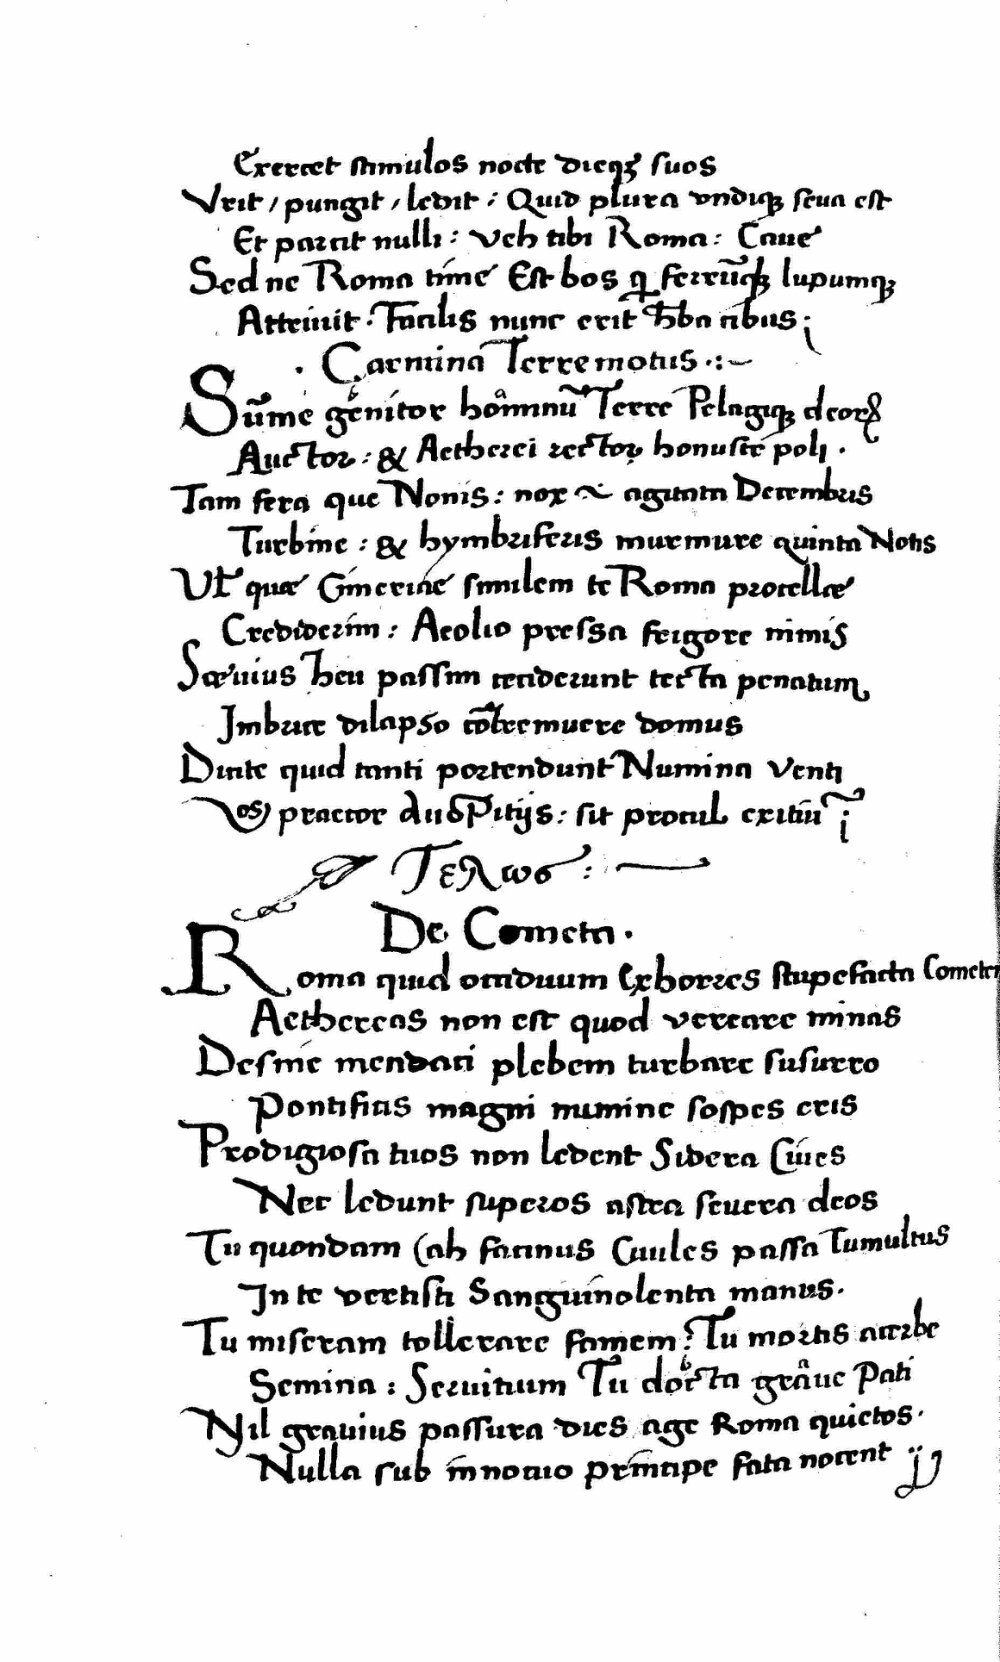 Exercet stimulos nocte dieqꝫ suos
Vrit / pungit / ledit : Quid plura vndiqꝫ seua est
Et parcit nulli : veh tibi Roma : Caue
Sed ne Roma time Est bos ꝗ ferrũqꝫ lupumqꝫ
Attriuit . Facilis nunc erit hba cibus ;
. Carmina Terremotus .:~
Sũme genitor hoĩmnũ Terre Pelagiqꝫ deorꝝ
Auctor : & Aetherei rector honuste poli .
Tam fera que Nonis : nox ~ agitata Decembris
Turbine : & hymbriferis murmure quinta Notis
Vt quæ Cimeriae similem te Roma procellæ
Crediderim : Aeolio pressa frigore nimis
Sæuius heu passim ceciderunt tecta penatum
Imbrice dilapso cõtremuere domus
Dicite quid tanti portendunt Numina venti
Vos praetor Auspitijs : sit procul exitiũ ;
Τελωσ :~
De Cometa .
Roma quid occiduum Exhorres stupefacta Cometen
Aethereas non est quod vereare minas
Desine mendaci plebem turbare susurro
Pontificis magni numine sospes eris
Prodigiosa tuos non ledent Sidera Ciues
Nec ledunt superos astra seuera deos
Tu quondam (ah facinus Ciuiles passa Tumultus
In te vertisti Sanguinolenta manus .
Tu miseram tollerare famem ? Tu mortis acerbe
Semina : Seruitium Tu docta graue Pati
Nil grauius passura dies age Roma quietos .
Nulla sub innocuo principe fata nocent ;